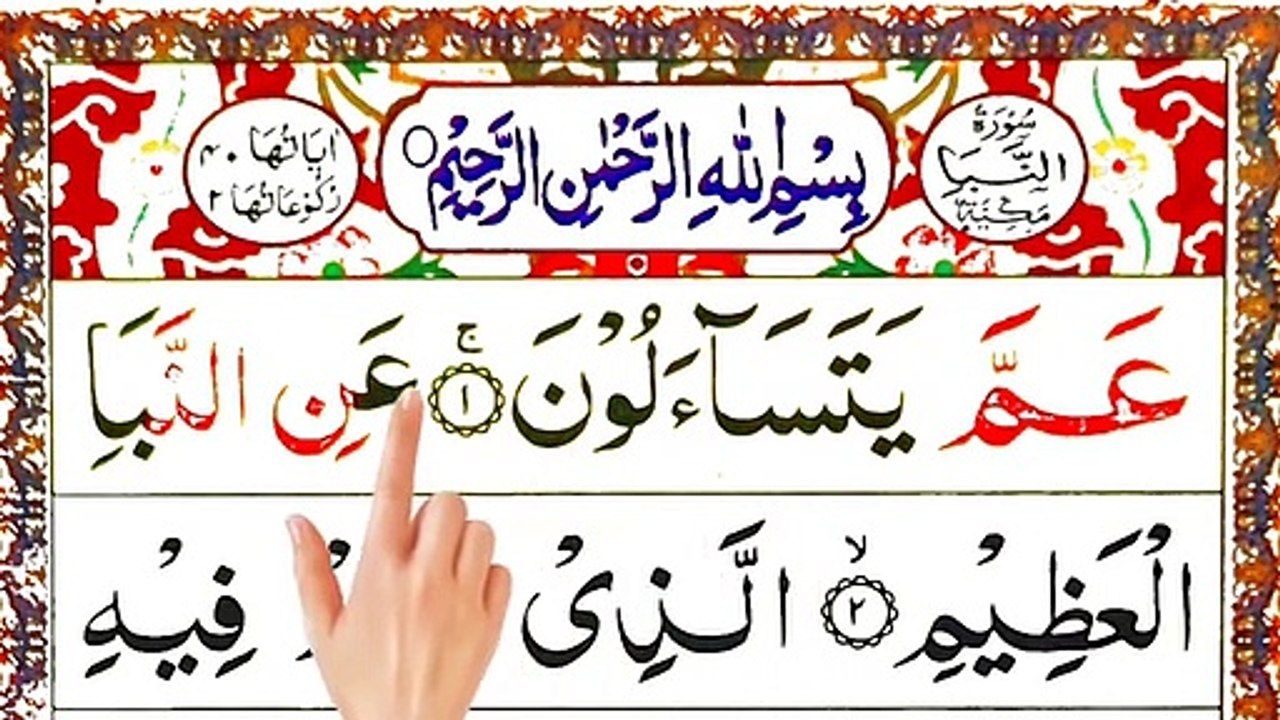 سُوْرَةُ
النَّبَاِ
مَكِّيَّةٌ
بِسْمِ اللّٰهِ الرَّحْمٰنِ الرَّحِيْمِ
اٰيَاتُهَا ۴۰
رُكُوْعَاتُهَا ۲
عَمَّ يَتَسَآءَلُوْنَ ۚ ۱ عَنِ النَّبَاِ
الْعَظِيْمِ ۙ ۲ الَّذِىْ فِيْهِ